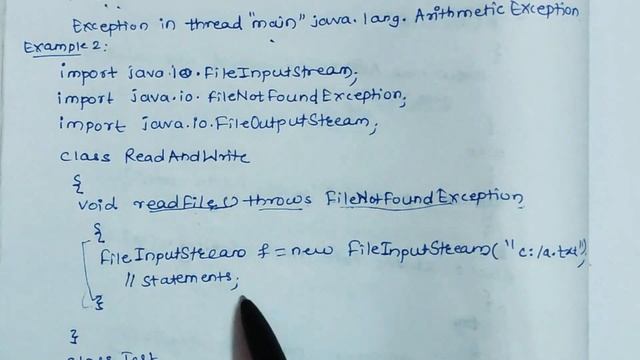 Exception in thread "main" java.lang. Arithmetic Exception
Example 2:
import java.io.FileInputStream;
import java.io.fileNotFoundException;
import java.io.FileOutputStream;
class ReadAndWrite
{
void readFile() throws FileNotFoundException
{
fileInputStream f = new fileInputStream("c:/a.txt");
// statements;
}
}
class Test